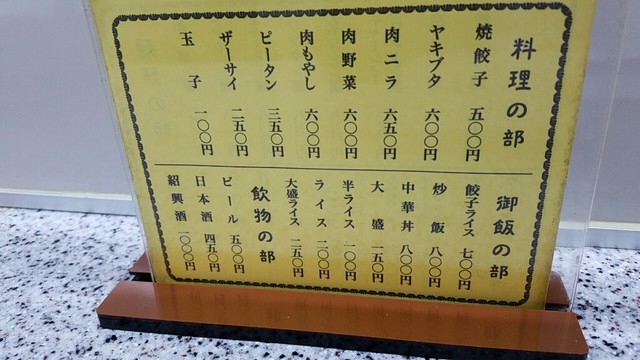 料理の部
焼餃子 五〇〇円
ヤキブタ 六〇〇円
肉ニラ 六五〇円
肉野菜 六〇〇円
肉もやし 六〇〇円
ピータン 三五〇円
ザーサイ 二五〇円
玉子 一〇〇円
御飯の部
餃子ライス 七〇〇円
炒飯 八〇〇円
中華丼 八〇〇円
大盛 一五〇円
半ライス 一〇〇円
ライス 二〇〇円
大盛ライス 二五〇円
飲物の部
ビール 五〇〇円
日本酒 四五〇円
紹興酒 一〇〇〇円